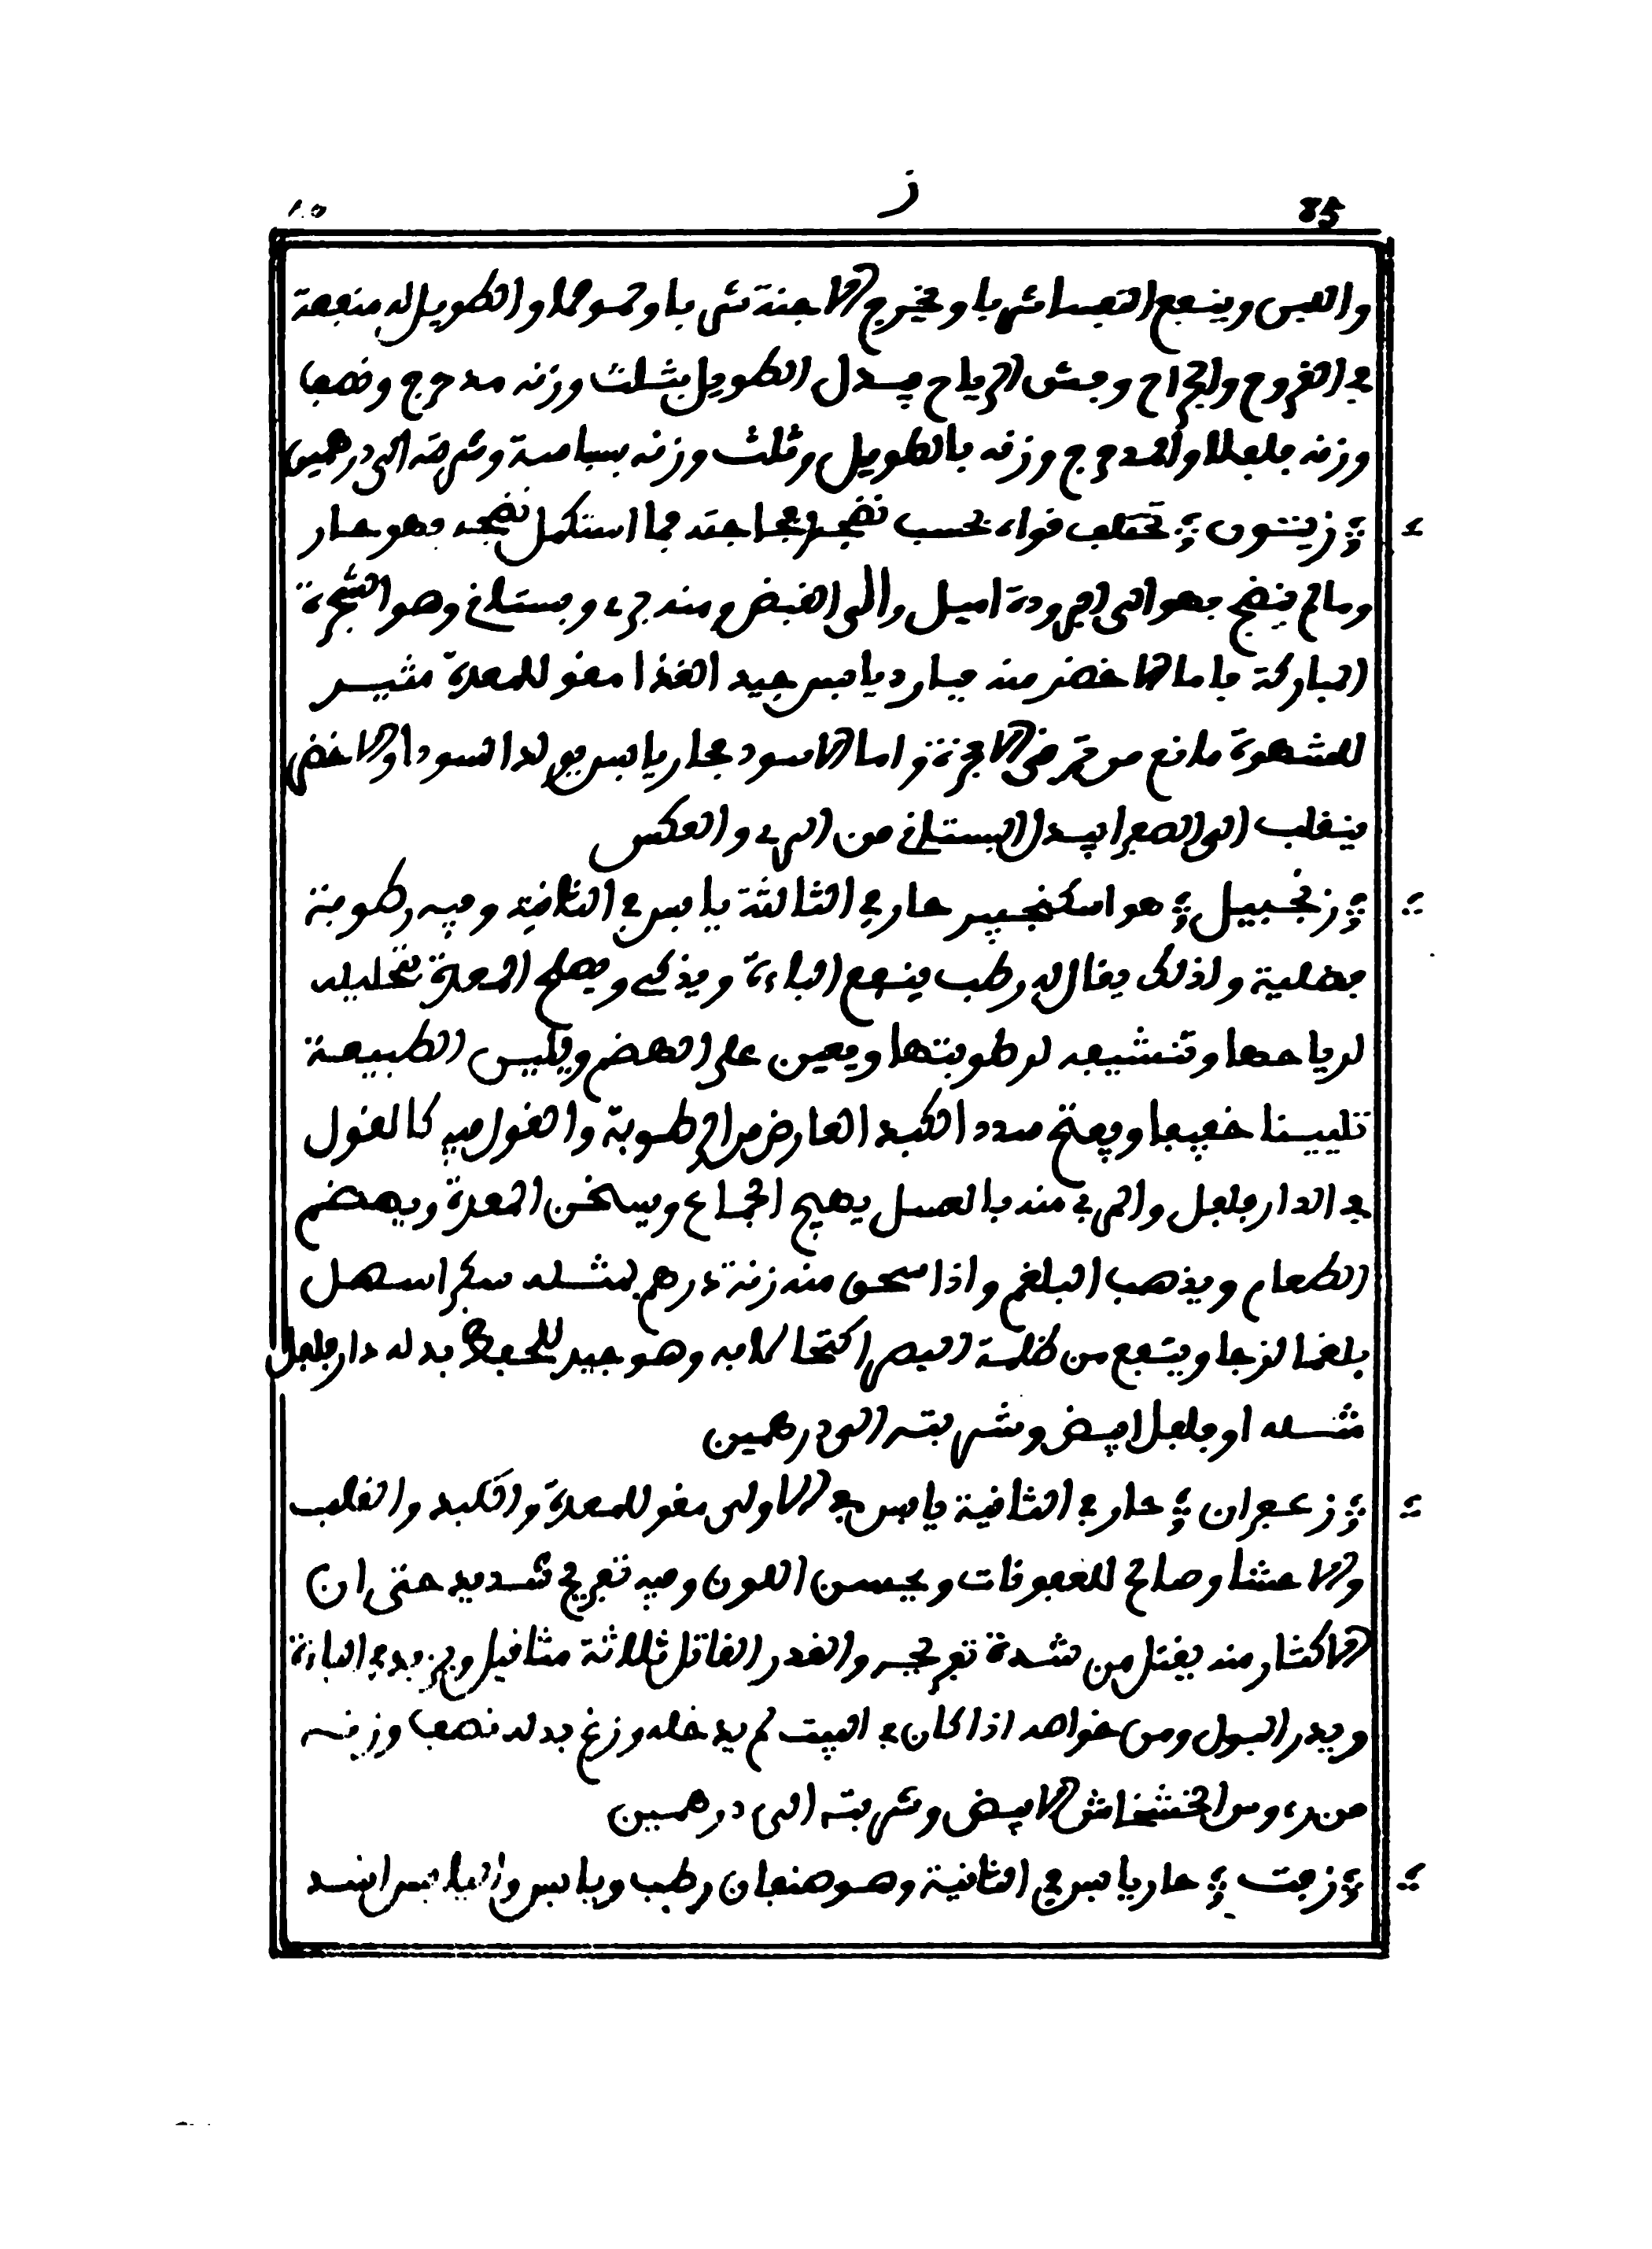 85
ز
٨٥
واللبن وينفع النفسا شربا ويخرج الاجنة شربا وحمولا والطويل له منفعة
في القروح والجراح وفش الرياح يبدل الطويل بثلث وزنه مدحرج ونصف
وزنه فلفلا والمدحرج وزنه بالطويل وثلث وزنه بسباسة وشربته الى درهمين
زيتون تختلف قواه بحسب نضجه وفجاجته فما استكمل نضجه فهو حار
وما لم ينضج فهو الى البرودة اميل والى القبض ومنه بري وبستاني وهو الشجرة
المباركة فاما الاخضر منه فبارد يابس جيد الغذا مقو للمعدة مثير
للشهوة مانع من الابخرة واما الاسود فحار يابس يولد السودا والاخضر
ينقلب الى الصفرا يبدل البستاني من البري والعكس
زنجبيل هو اسكنجبير حار في الثالثة يابس في الثانية وفيه رطوبة
فضلية ولذلك يقال له رطب ينفع الباءة ويذكي ويصلح المعدة بتحليله
لرياحها وتنشيفه لرطوبتها ويعين على الهضم ويليين الطبيعة
تليينا خفيفا ويفتح سدد الكبد العارض من الرطوبة والقول فيه كالقول
في الدار فلفل والمربى منه بالعسل يهيج الجماع ويسخن المعدة ويهضم
الطعام ويذهب البلغم واذا سحق منه زنة درهم بمثله سكر اسهل
بلغما لزجا وينفع من ظلمة البصر اكتحالا به وهو جيد للحفظ بدله دار فلفل
مثله او فلفل ابيض وشربته الى درهمين
زعفران حار في الثانية يابس في الاولى مقو للمعدة والكبد والقلب
والاحشا وصالح للعفونات ويحسن اللون وفيه تفريح شديد حتى ان
الاكثار منه يقتل من شدة تفريحه والقدر القاتل ثلاثة مثاقيل ويزيد في الباءة
ويدر البول ومن خواصه اذا كان في البيت لم يدخله وزغ بدله نصف وزنه
من رءوس الخشخاش الابيض وشربته الى درهمين
زفت حار يابس في الثانية وهو صنفان رطب ويابس واليابس اشد